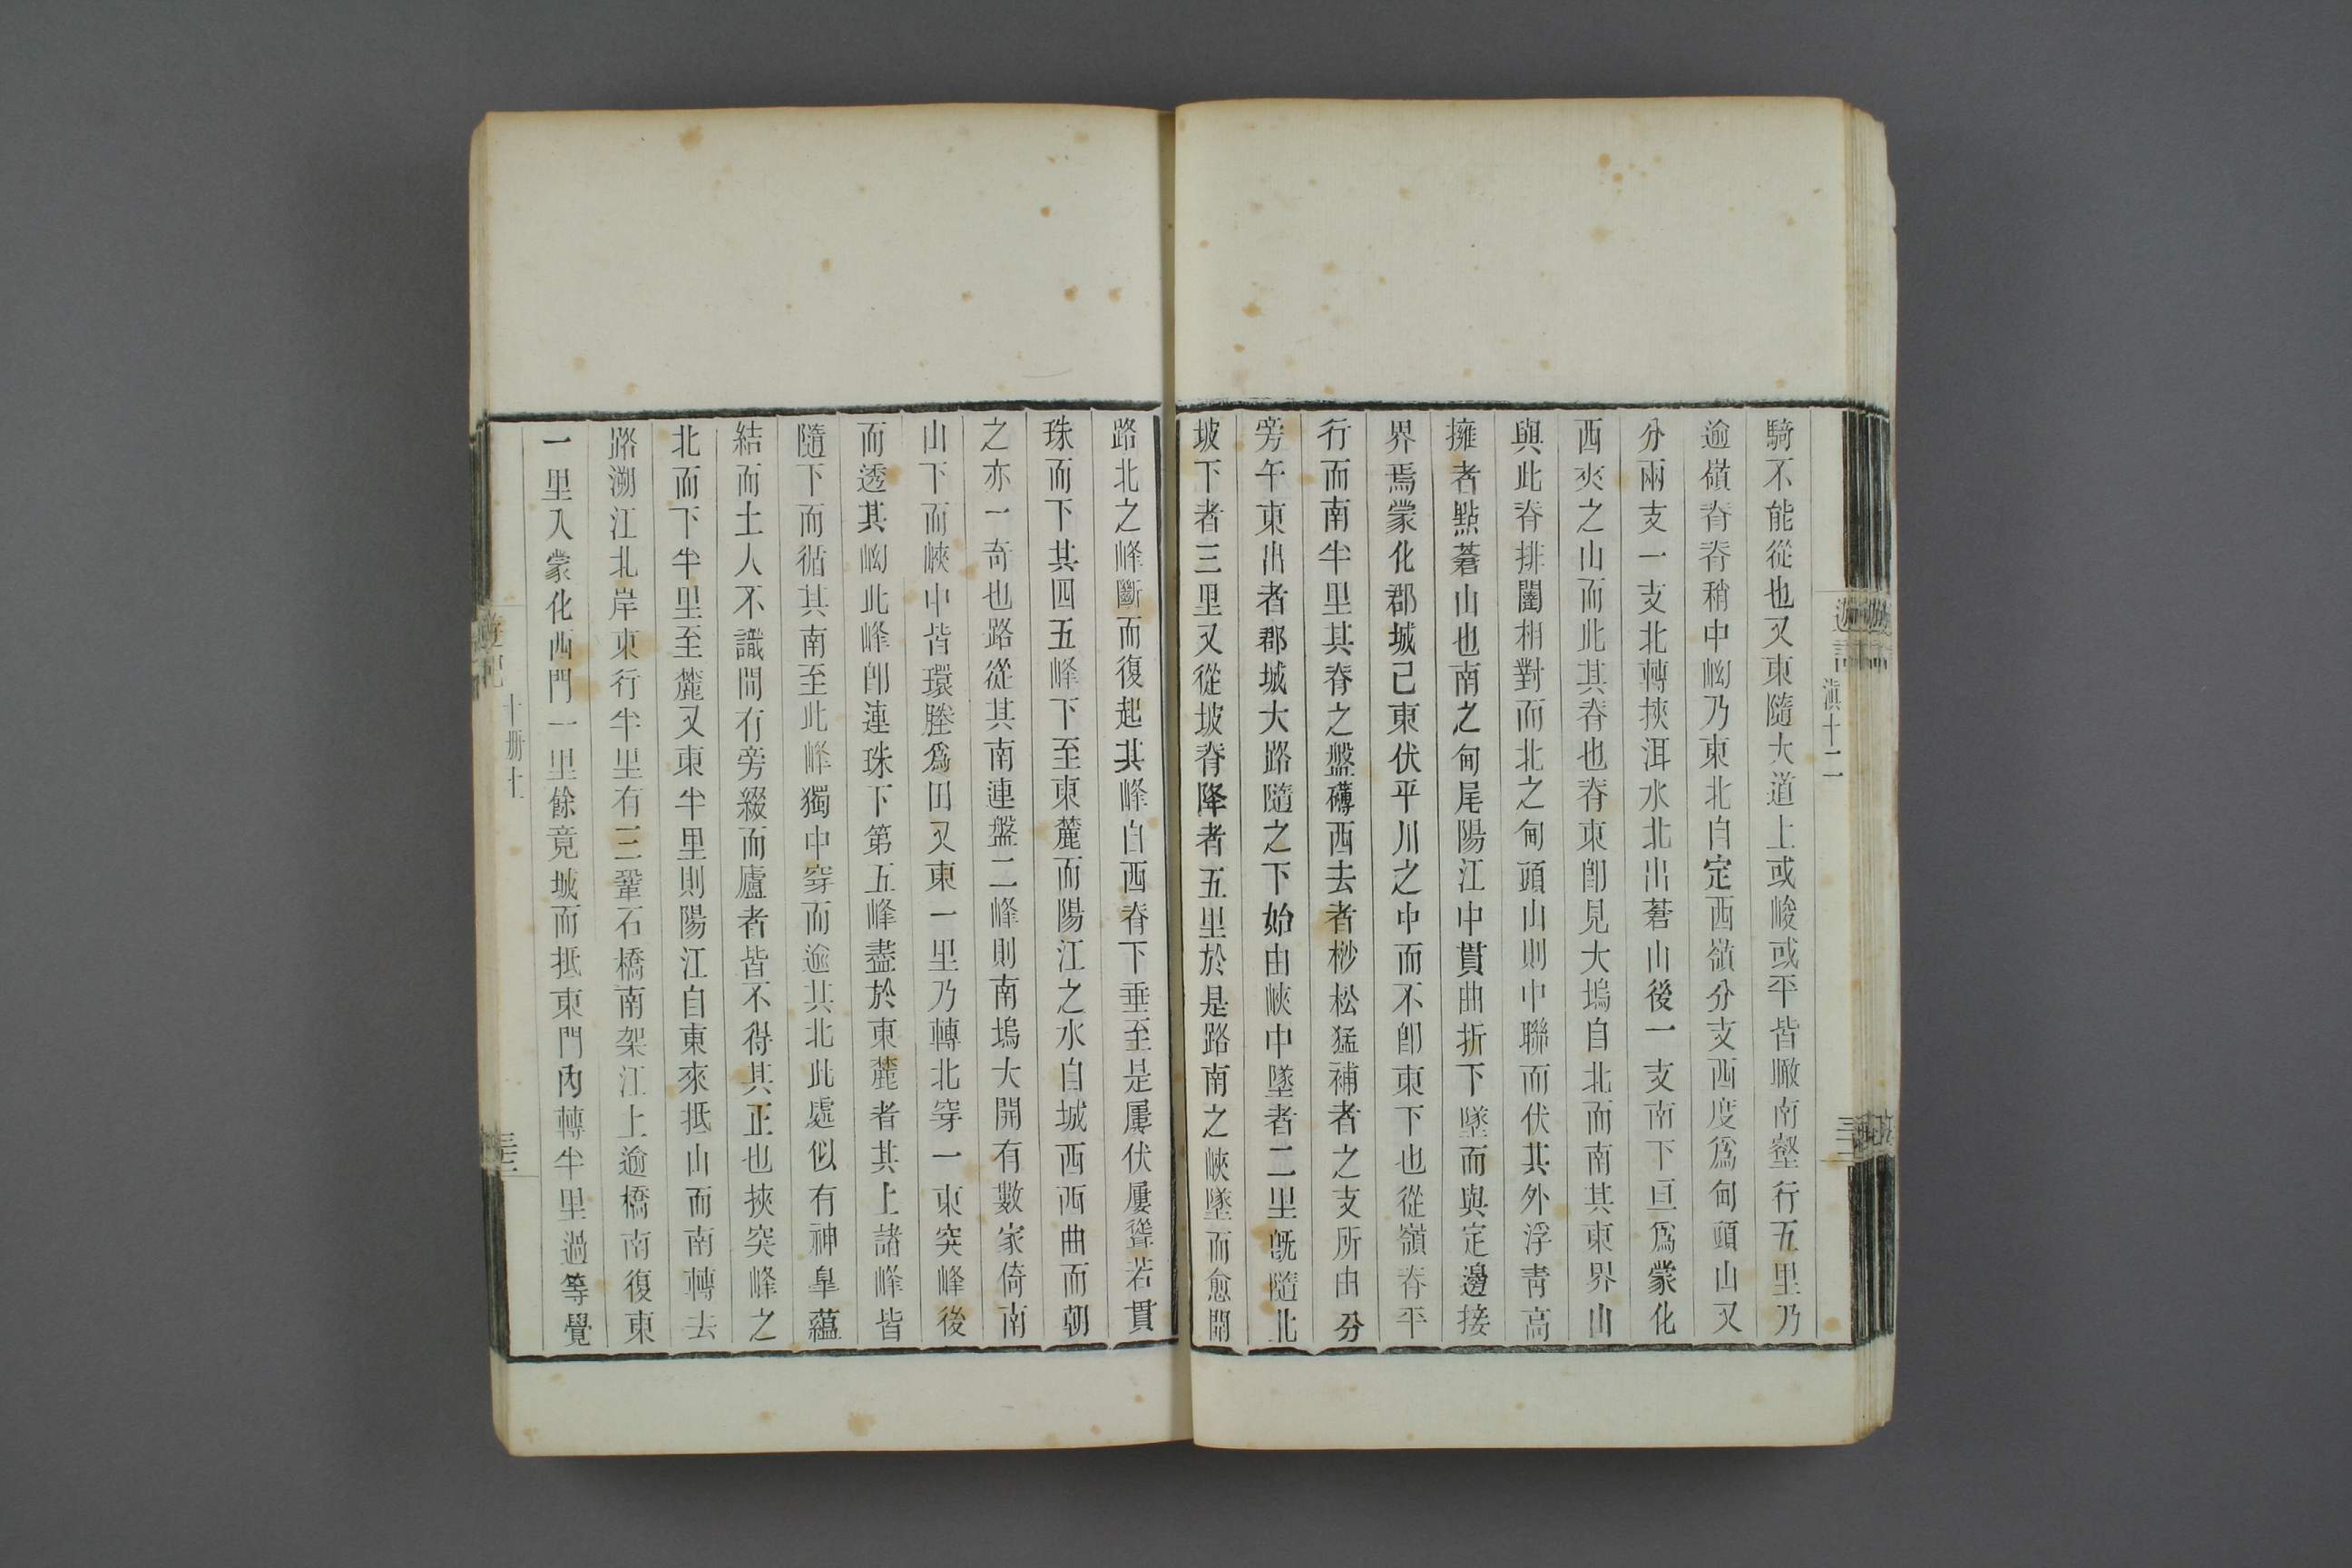 騎不能從也又東隨大道上或峻或平皆瞰南壑行五里乃
逾嶺脊脊稍中坳乃東北自定西嶺分支西度爲甸頭山又
分兩支一支北轉挾洱水北出蒼山後一支南下亘爲蒙化
西夾之山而此其脊也脊東卽見大塢自北而南其東界山
與此脊排闥相對而北之甸頭山則中聯而伏其外浮靑高
擁者點蒼山也南之甸尾陽江中貫曲折下墜而與定邊接
界焉蒙化郡城已東伏平川之中而不卽東下也從嶺脊平
行而南半里其脊之盤礴西去者桫松猛補者之支所由分
旁午東出者郡城大路隨之下始由峽中墜者二里旣隨北
坡下者三里又從坡脊降者五里於是路南之峽墜而愈開
路北之峰斷而復起其峰自西脊下垂至是屢伏屢聳若貫
珠而下其四五峰下至東麓而陽江之水自城西西曲而朝
之亦一奇也路從其南連盤二峰則南塢大開有數家倚南
山下而峽中皆環塍爲田又東一里乃轉北穿一東突峰後
而透其坳此峰卽連珠下第五峰盡於東麓者其上諸峰皆
隨下而循其南至此峰獨中穿而逾其北此處似有神皐蘊
結而土人不識間有旁綴而廬者皆不得其正也挾突峰之
北而下半里至麓又東半里則陽江自東來抵山而南轉去
路溯江北岸東行半里有三鞏石橋南架江上逾橋南復東
一里入蒙化西門一里餘竟城而抵東門內轉半里過等覺
滇十二
遊記
十册上